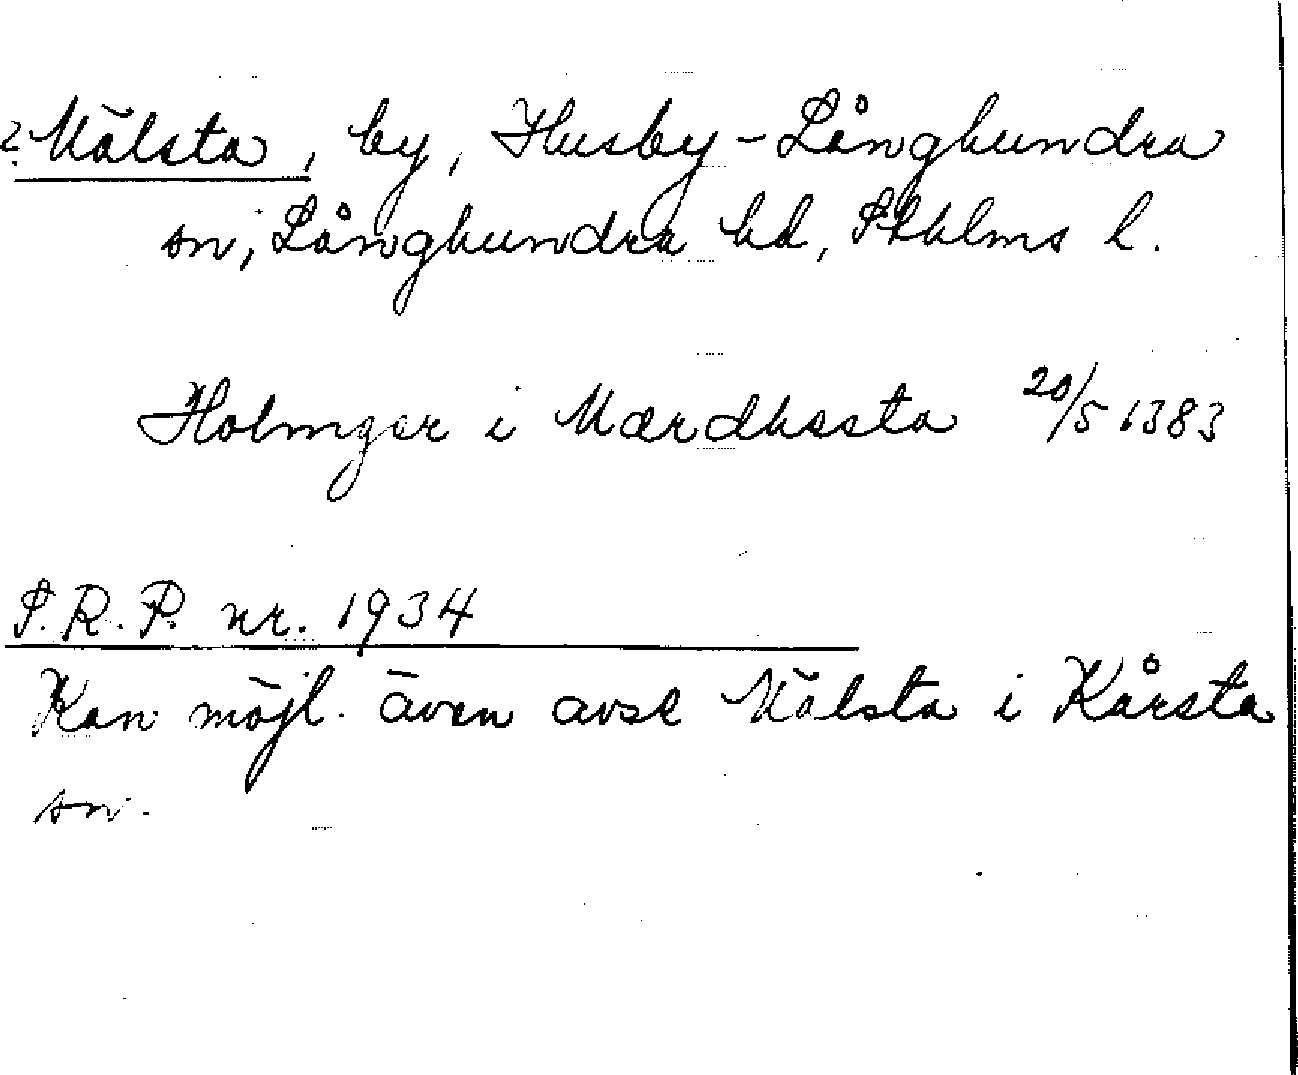 ? Mälsta, by, Husby-Långhundra
sn, Långhundra hd, Sthlms l.
Holmger i Mærdhssta 20/5 1383
S.R.P. nr. 1934
Kan möjl. även avse Mälsta i Kårsta
sn.